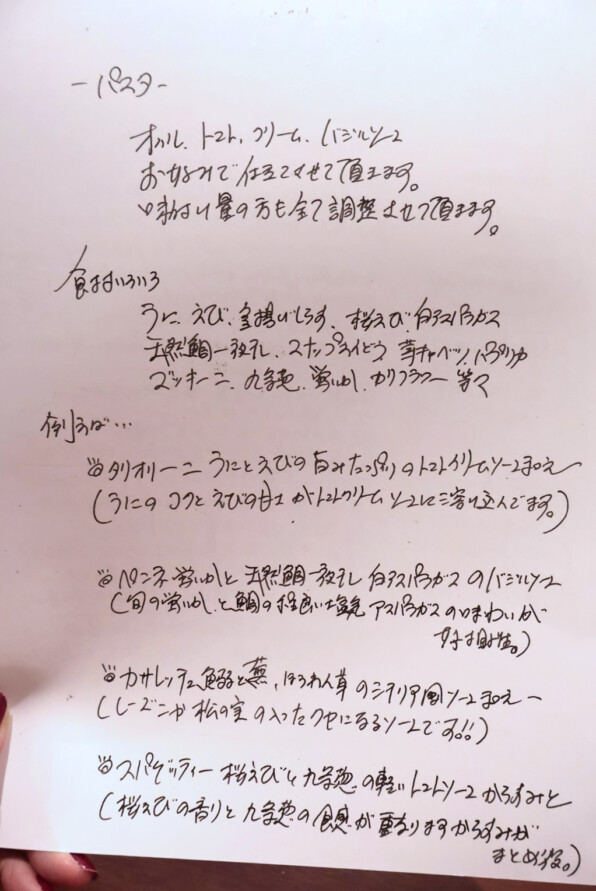 ーパスター
オイル、トマト、クリーム、バジルソース
お好みで仕立てさせて頂きます。
味わい量の方も全て調整させて頂きます。
食材いろいろ
うに、えび、釜揚げしらす、桜えび、白アスパラガス
天然鯛一夜干し、スナップエンドウ、芽キャベツ、パプリカ
ズッキーニ、九条葱、蛍いか、カリフラワー 等々
例えば…
タリオリーニ うにとえびの旨みたっぷりのトマトクリームソース和えー
(うにのコクとえびの甘さがトマトクリームソースに溶け込んでます。)
ペンネ 蛍いかと天然鯛一夜干し 白アスパラガスのバジルソース
(旬の蛍いかと鯛の程良い塩気 アスパラガスの味わいが
好相性。)
カサレッチェ 鰯と蕪、ほうれん草のシチリア風ソース和えー
(レーズンが松の実の入ったクセになるソースです!!)
スパゲッティー 桜えびと九条葱の軽いトマトソース からすみと
(桜えびの香りと九条葱の食感が重なります からすみが
まとめ役。)